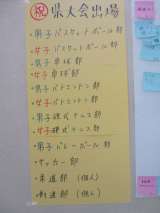 祝 県大会出場
・男子バスケットボール部
・女子バスケットボール部
・男子卓球部
・女子卓球部
・男子バドミントン部
・女子バドミントン部
・男子硬式テニス部
・女子硬式テニス部
・男子バレーボール部
・サッカー部
・柔道部(個人)
・剣道部(個人)